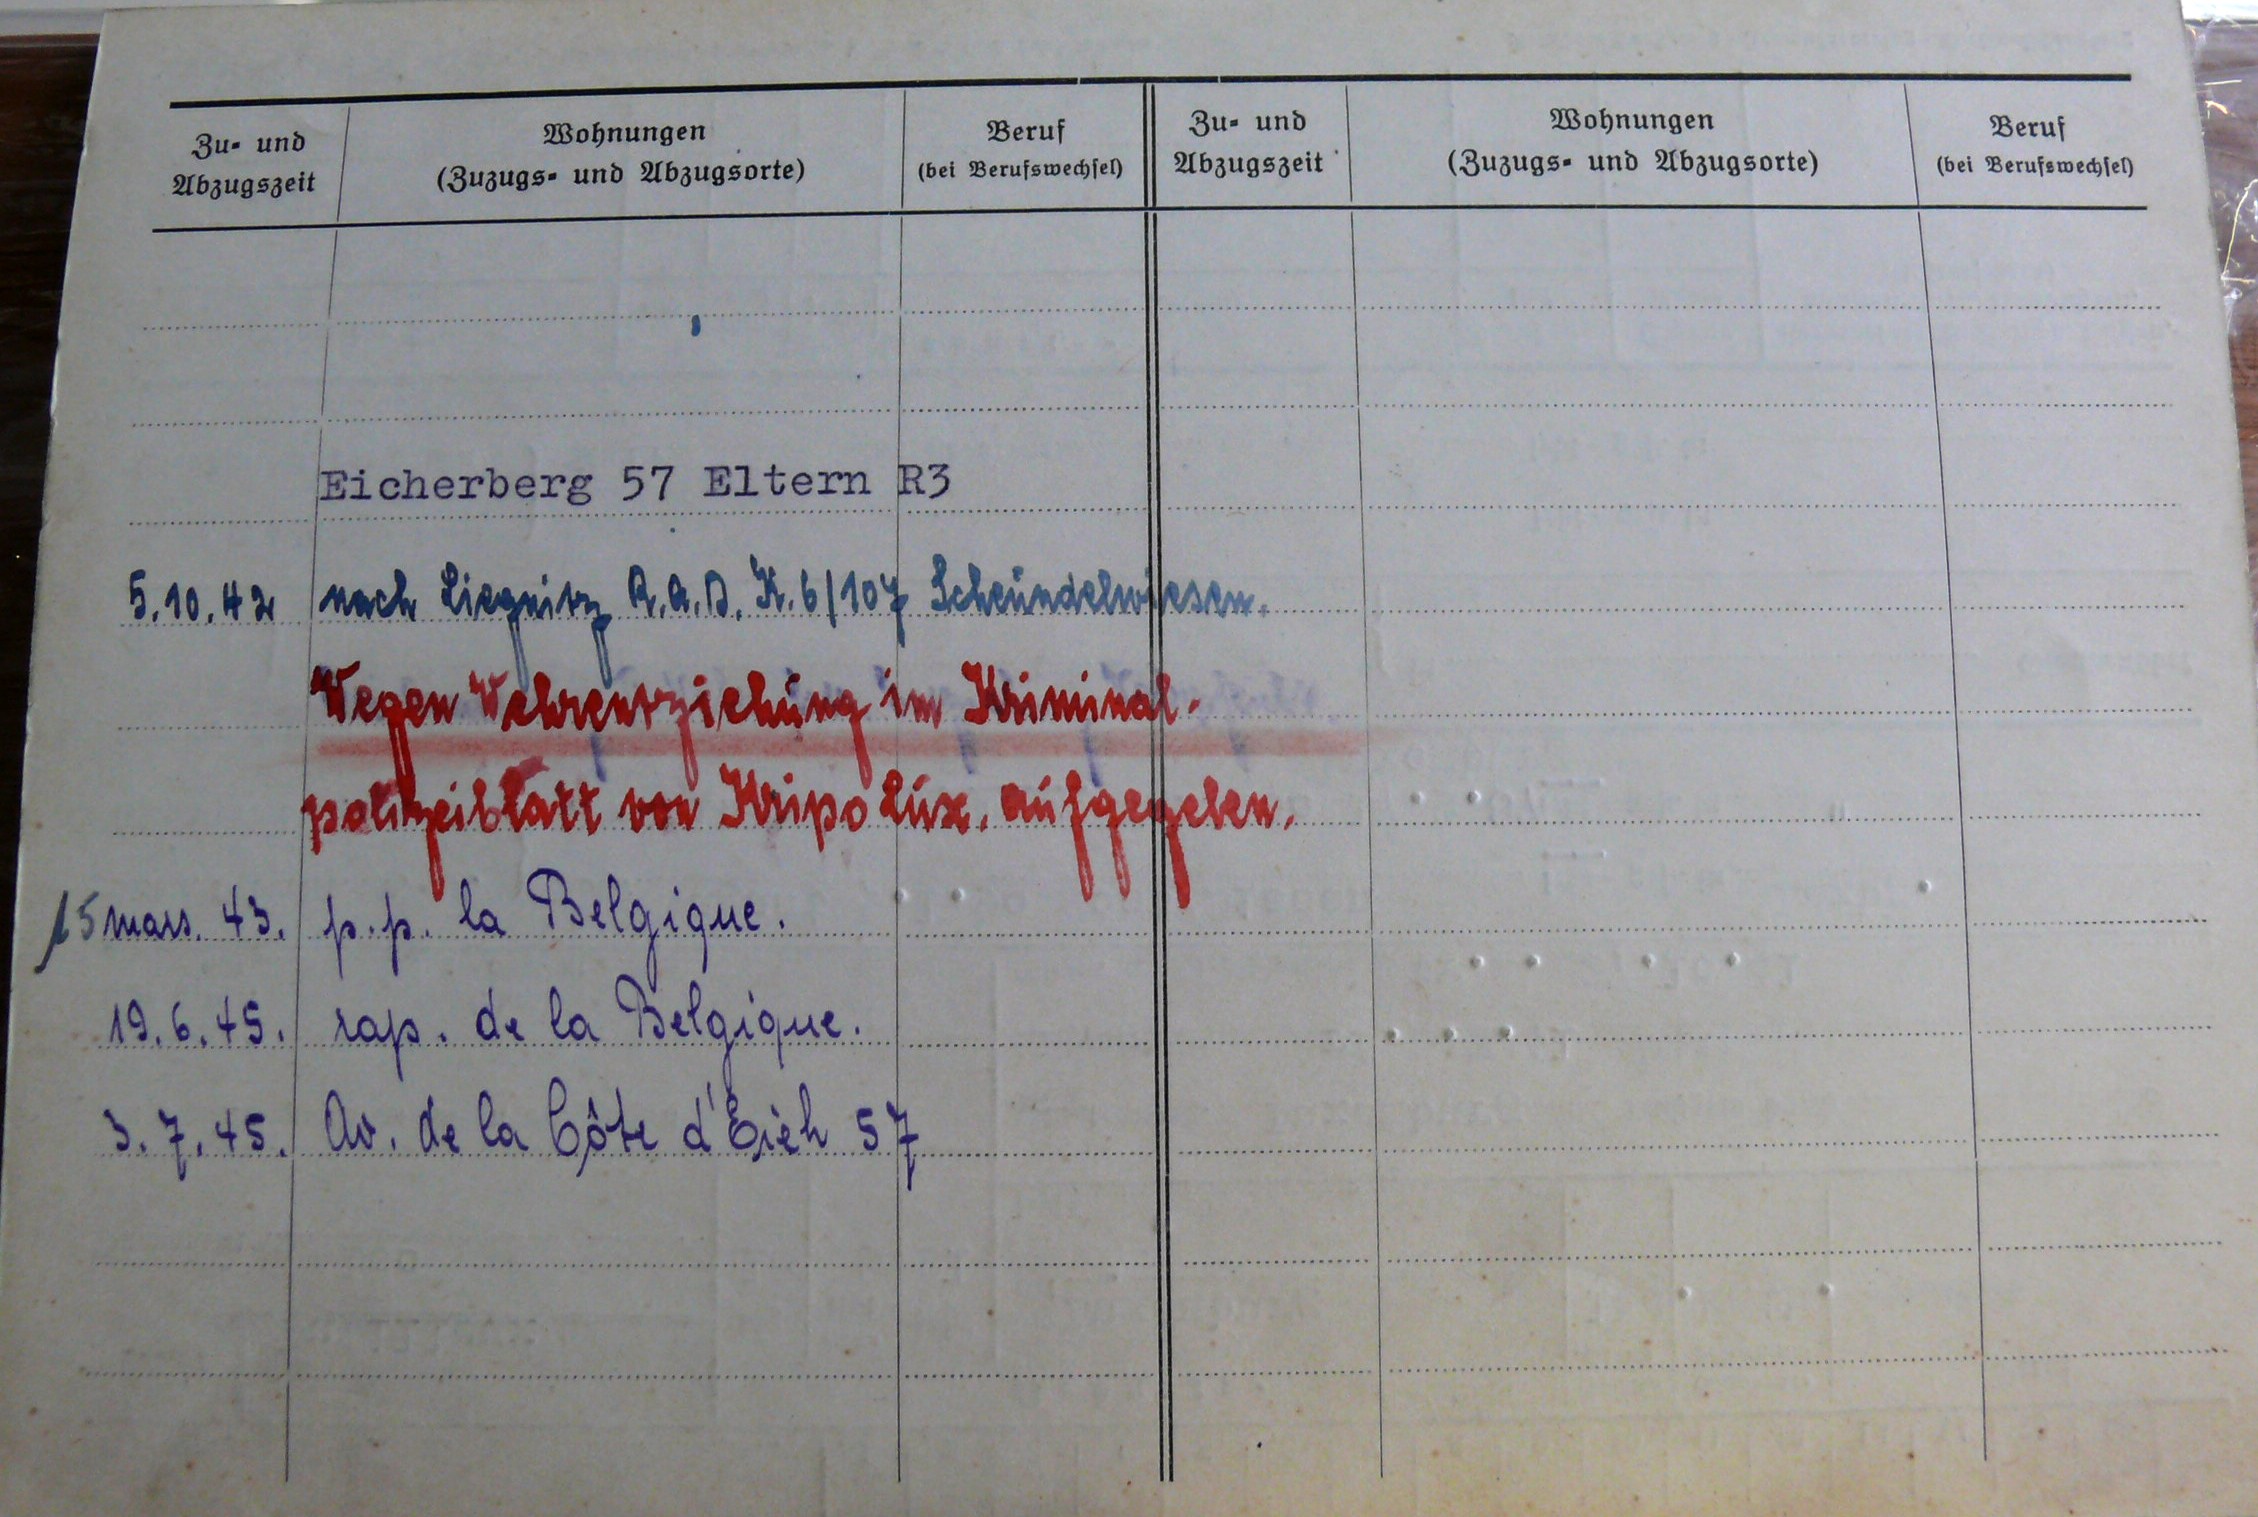 Zu- und
Abzugszeit
Wohnungen
(Zuzugs- und Abzugsorte)
Beruf
(bei Berufswechsel)
Zu- und
Abzugszeit
Wohnungen
(Zuzugs- und Abzugsorte)
Beruf
(bei Berufswechsel)
Eicherberg 57 Eltern R3
5.10.42 nach Liegnitz R.A.D. K.6/107 Scheündelwiesen.
Wegen Wehrentziehüng im Kriminal-
polizeiblatt von Kripo Lüx. aüfgegeben.
15 mars. 43. p.p. la Belgique.
19.6.45. rap. de la Belgique.
3.7.45. Av. de la Côte d'Eich 57